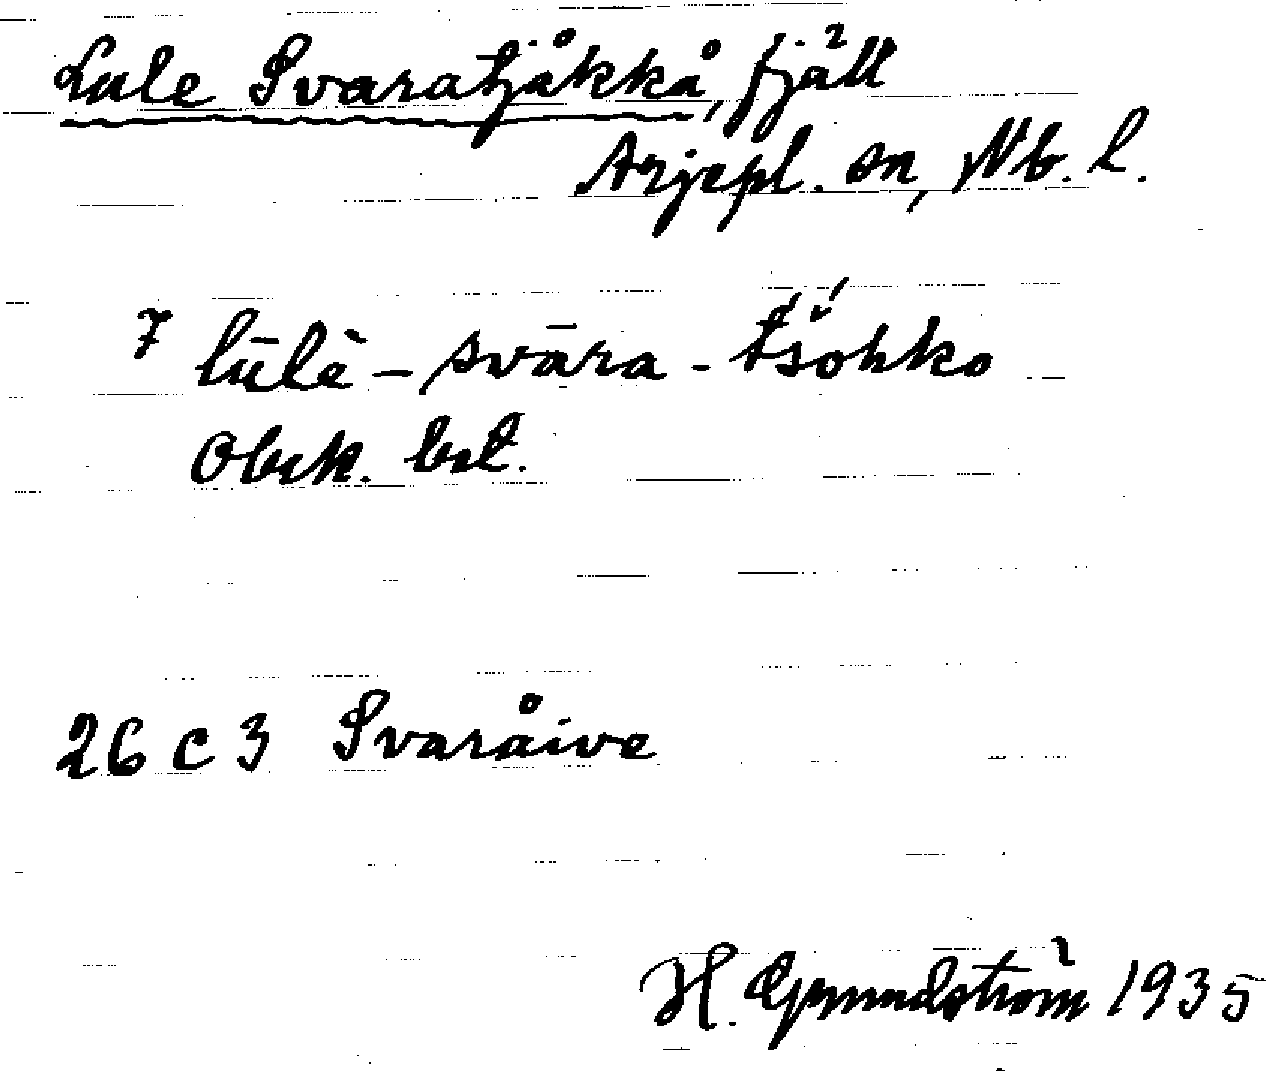 Lule Svaratjåkkå, fjäll
Arjepl. sn, Nb. l.
7 lūlē - svāra - t́š́ohko
Obek. bet.
26 c 3 Svaråive
H. Grundström 1935